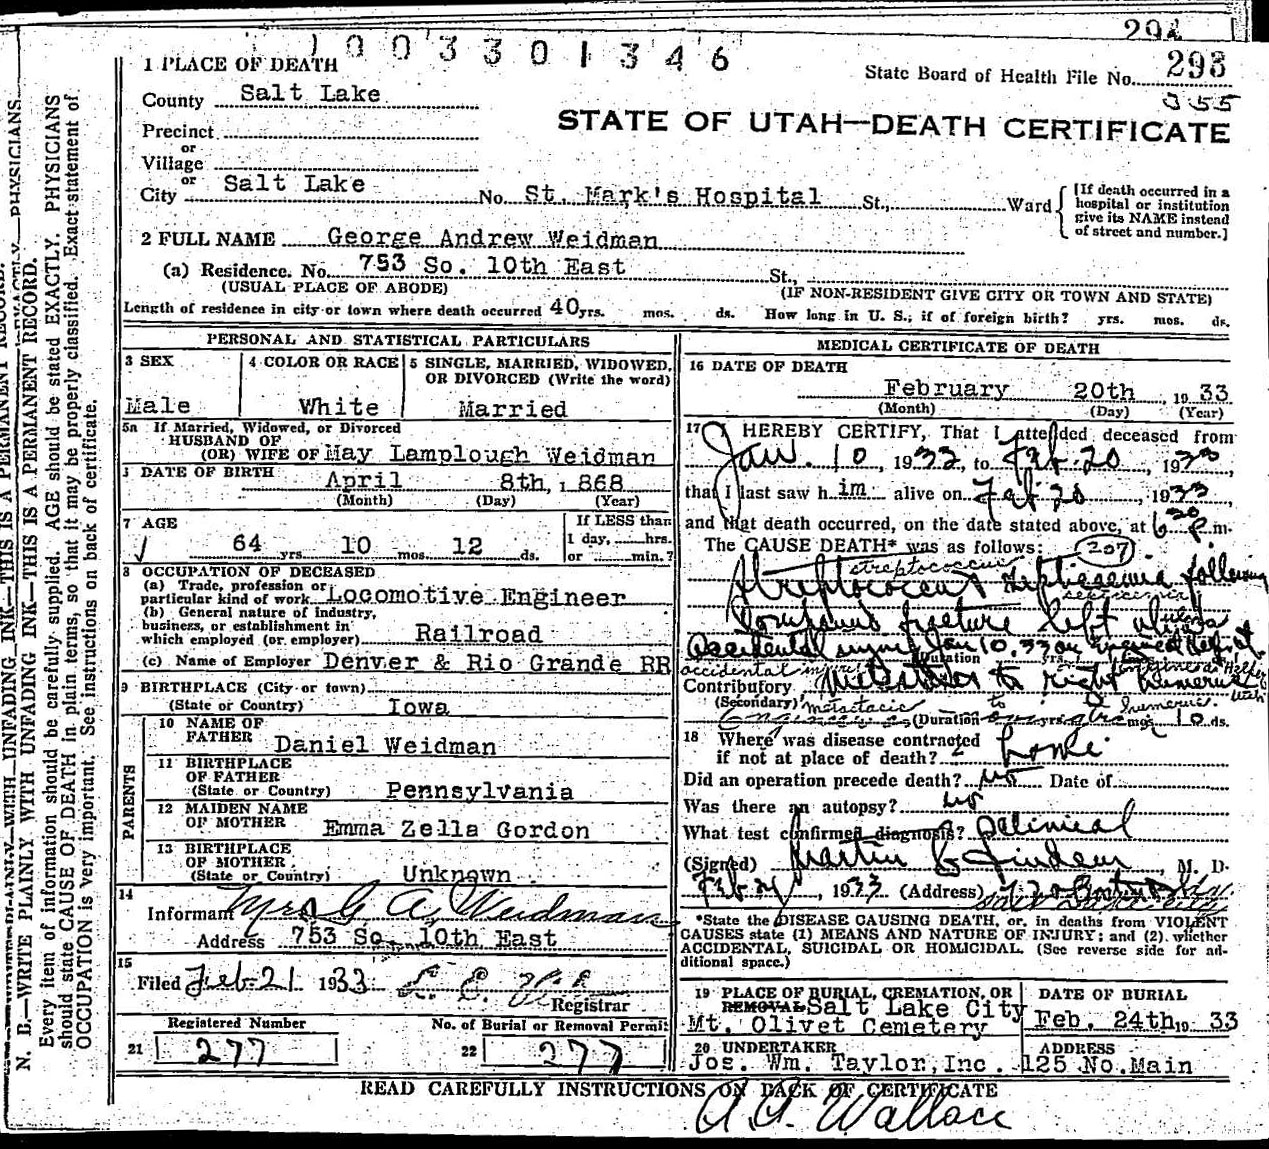 294
1003301346
1 PLACE OF DEATH
State Board of Health File No. 293
355
County Salt Lake
STATE OF UTAH—DEATH CERTIFICATE
Precinct
or
Village
or
City Salt Lake No. St. Mark's Hospital St., Ward
[If death occurred in a
hospital or institution
give its NAME instead
of street and number.]
2 FULL NAME George Andrew Weidman
(a) Residence. No. 753 So. 10th East St.,
(USUAL PLACE OF ABODE) (IF NON-RESIDENT GIVE CITY OR TOWN AND STATE)
Length of residence in city or town where death occurred 40 yrs. mos. ds. How long in U. S., if of foreign birth? yrs. mos. ds.
PERSONAL AND STATISTICAL PARTICULARS
3 SEX
Male
4 COLOR OR RACE
White
5 SINGLE, MARRIED, WIDOWED,
OR DIVORCED (Write the word)
Married
5a If Married, Widowed, or Divorced
HUSBAND OF
(OR) WIFE OF May Lamplough Weidman
DATE OF BIRTH
April 8th, 1868
(Month) (Day) (Year)
7 AGE
64 yrs 10 mos. 12 ds.
If LESS than
1 day, hrs.
or min.?
8 OCCUPATION OF DECEASED
(a) Trade, profession or
particular kind of work Locomotive Engineer
(b) General nature of industry,
business, or establishment in
which employed (or employer) Railroad
(c) Name of Employer Denver & Rio Grande RR
9 BIRTHPLACE (City or town)
(State or Country) Iowa
PARENTS
10 NAME OF
FATHER Daniel Weidman
11 BIRTHPLACE
OF FATHER
(State or Country) Pennsylvania
12 MAIDEN NAME
OF MOTHER Emma Zella Gordon
13 BIRTHPLACE
OF MOTHER
(State or Country) Unknown
14
Informant Mrs G. A. Weidman
Address 753 So. 10th East
15
Filed Feb-21 1933
Registrar
Registered Number
21 277
No. of Burial or Removal Permit
22 277
MEDICAL CERTIFICATE OF DEATH
16 DATE OF DEATH
February 20th, 1933
(Month) (Day) (Year)
17 I HEREBY CERTIFY, That I attended deceased from
Jan. 10, 1933, to Feb-20, 1933,
that I last saw him alive on Feb 20, 1933
and that death occurred, on the date stated above, at 6 30 P.m.
The CAUSE DEATH* was as follows: 207
streptococcus
Streptococcus septicemia following
septicemia
Compound fracture left
Accidental injury Jan 10.33 on
Duration yrs.
accidental injury
Contributory Metastases to right humerus
(Secondary) metastacic to humerus. Utah
(Duration yrs. mos. 10 ds.
18 Where was disease contracted
if not at place of death?
Did an operation precede death? no Date of
Was there an autopsy? no
What test confirmed diagnosis? Clinical
(Signed) Martin C Lindem M. D.
Feb 21, 1933 (Address)
*State the DISEASE CAUSING DEATH, or, in deaths from VIOLENT
CAUSES state (1) MEANS AND NATURE OF INJURY; and (2) whether
ACCIDENTAL, SUICIDAL OR HOMICIDAL. (See reverse side for ad-
ditional space.)
19 PLACE OF BURIAL, CREMATION, OR
REMOVAL Salt Lake City
Mt. Olivet Cemetery
DATE OF BURIAL
Feb. 24th 1933
20 UNDERTAKER
Jos. Wm. Taylor, Inc.
ADDRESS
125 No. Main
READ CAREFULLY INSTRUCTIONS ON BACK OF CERTIFICATE
A. A. Wallace
N. B.—WRITE PLAINLY WITH UNFADING INK—THIS IS A PERMANENT RECORD.
Every item of information should be carefully supplied. AGE should be stated EXACTLY. PHYSICIANS
should state CAUSE OF DEATH in plain terms, so that it may be properly classified. Exact statement of
OCCUPATION is very important. See instructions on back of certificate.